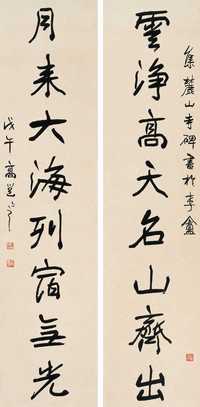 集麓山寺碑書於李盦
雲淨高天名山齊出
月来大海列宿無光
戊午高邕之